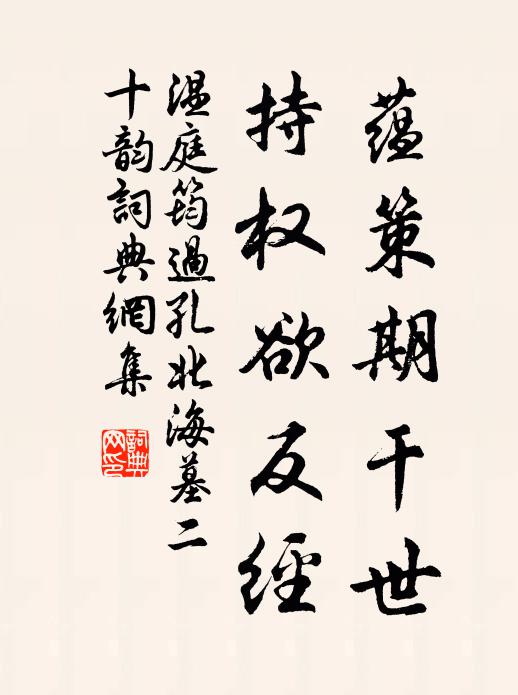 蕴策期干世
持权欲反經
温庭筠過孔北海墓二
十韵詞典網集
詞典
网印